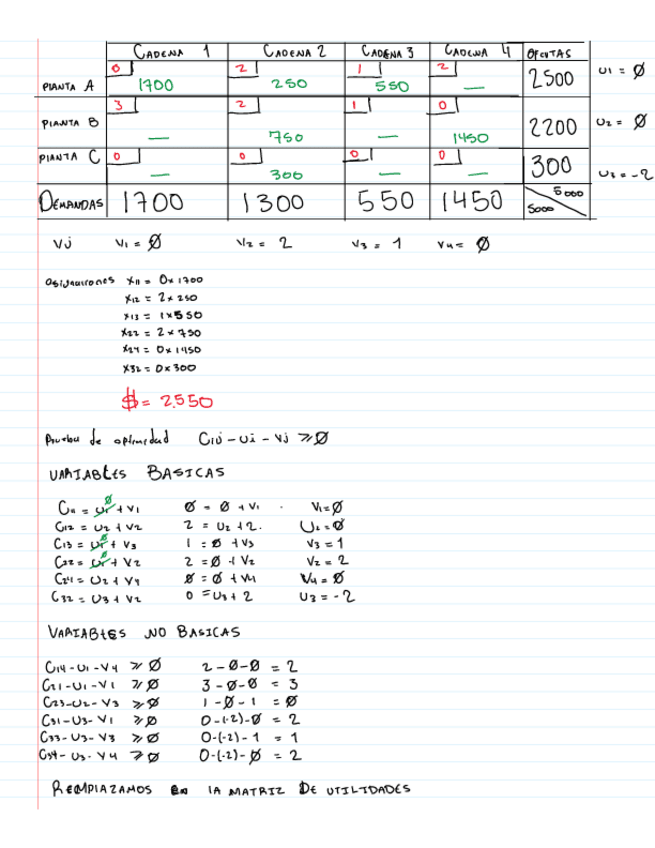 CADENA 1 CADENA 2 CADENA 3 CADENA 4 OFERTAS
0 2 1 2
PLANTA A 1700 250 550 — 2500 U1 = Ø
3 2 1 0
PLANTA B — 750 — 1450 2200 U2 = Ø
PLANTA C 0 0 0 0
— 300 — — 300 U3 = -2
DEMANDAS 1700 1300 550 1450 5000 5000
Vj V1 = Ø V2 = 2 V3 = 1 V4 = Ø
Asignaciones X11 = 0x1700
X12 = 2x250
X13 = 1x550
X22 = 2x750
X24 = 0x1450
X32 = 0x300
$ = 2.550
Prueba de optimidad Cij - Ui - Vj ≥ Ø
VARIABLES BASICAS
C11 = U1 Ø + V1 Ø = Ø + V1 V1 = Ø
C12 = U2 + V2 2 = U2 + 2. U2 = Ø
C13 = U1 Ø + V3 1 = Ø + V3 V3 = 1
C22 = U1 Ø + V2 2 = Ø + V2 V2 = 2
C24 = U2 + V4 Ø = Ø + V4 V4 = Ø
C32 = U3 + V2 0 = U3 + 2 U3 = -2
VARIABLES NO BASICAS
C14 - U1 - V4 ≥ Ø 2 - Ø - Ø = 2
C21 - U1 - V1 ≥ Ø 3 - Ø - Ø = 3
C23 - U2 - V3 ≥ Ø 1 - Ø - 1 = Ø
C31 - U3 - V1 ≥ Ø 0 - (-2) - Ø = 2
C33 - U3 - V3 ≥ Ø 0 - (-2) - 1 = 1
C34 - U3 - V4 ≥ Ø 0 - (-2) - Ø = 2
REMPLAZAMOS EN LA MATRIZ DE UTILIDADES